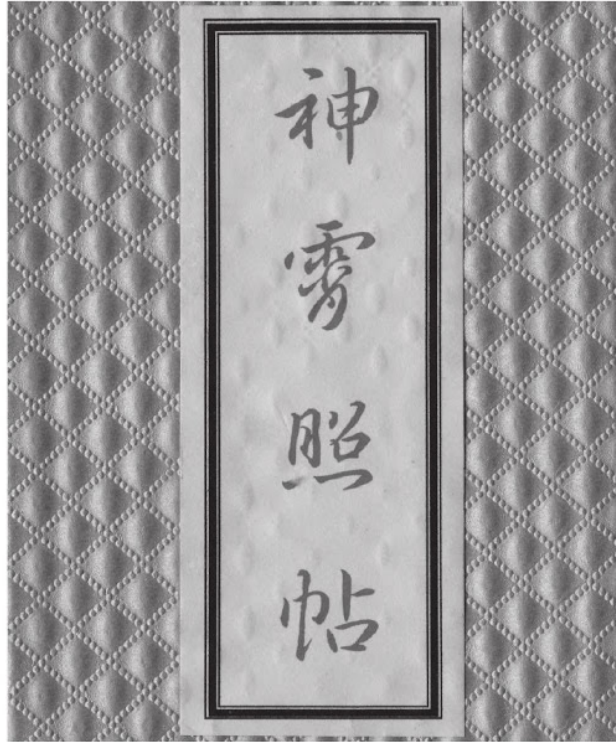 神霄照帖